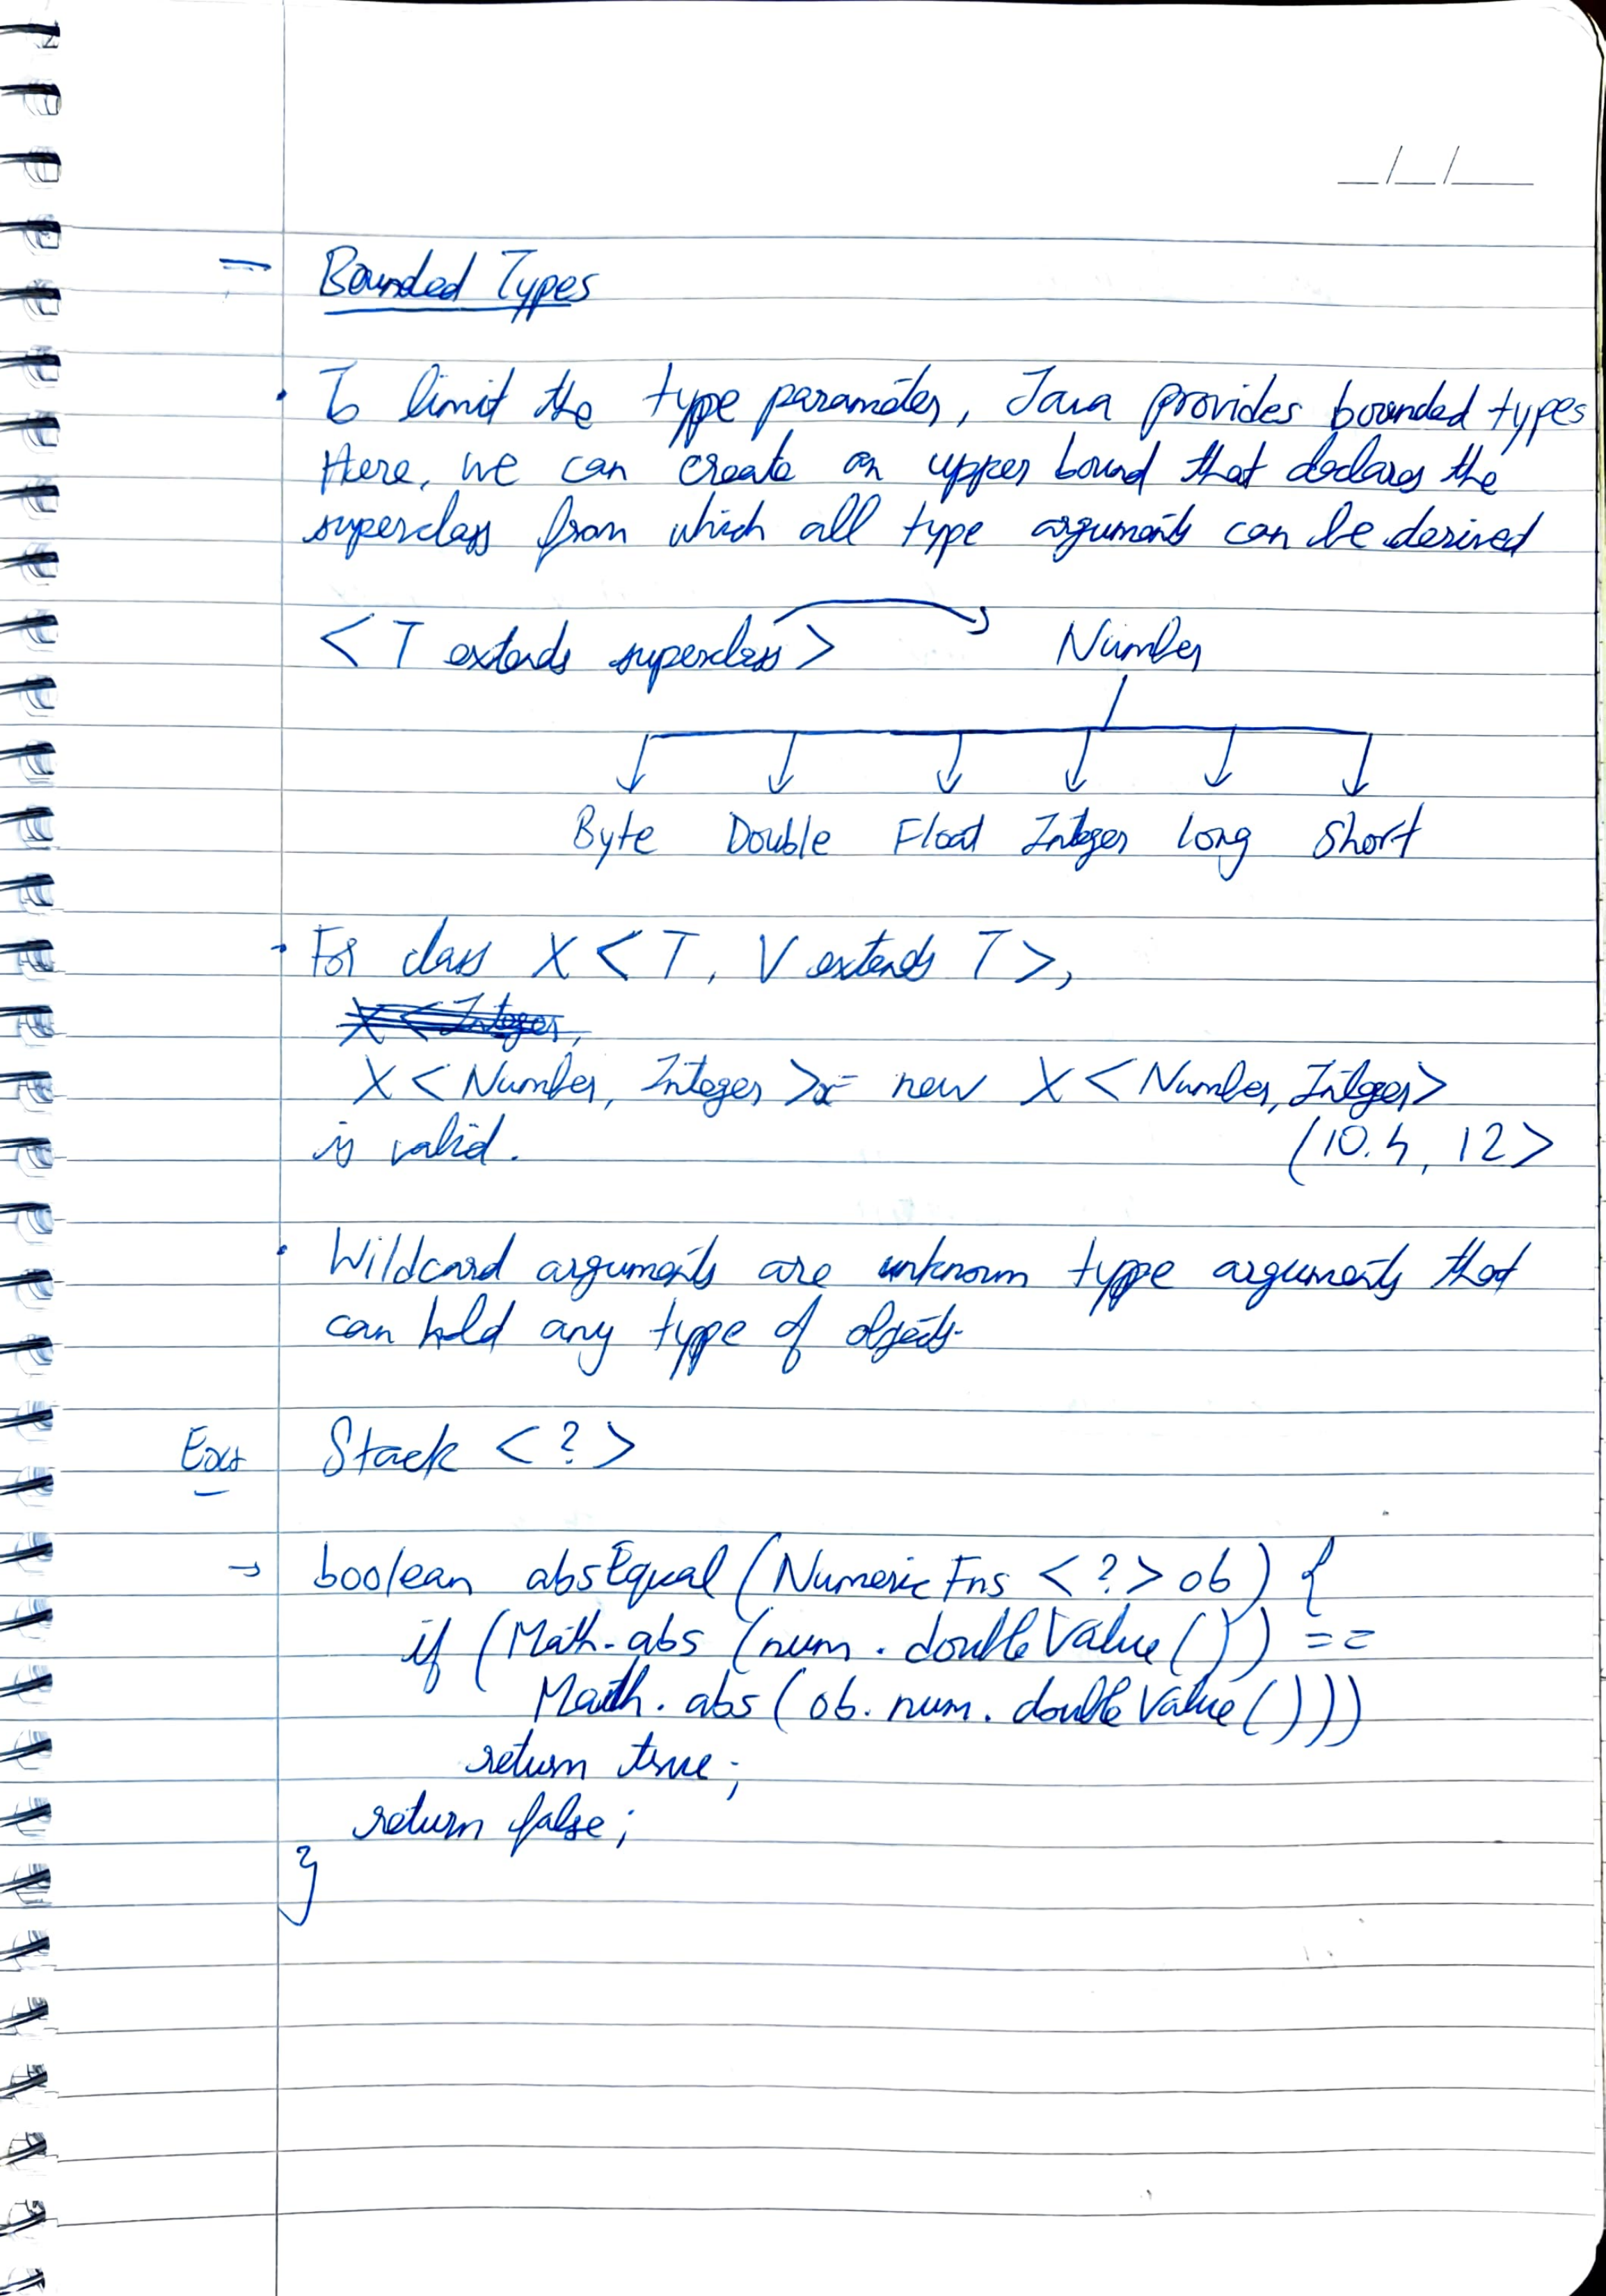 __/__/____
= Bounded Types
· To limit the type parameter, Java provides bounded types
Here, we can create an upper bound that declares the
superclass from which all type arguments can be derived
<T extends superclass> Number
Byte Double Float Integer Long Short
· For class X<T, V extends T>,
X<Integer,
X<Number, Integer>x= new X<Number, Integer>
is valid. (10.4, 12>
· Wildcard arguments are unknown type arguments that
can hold any type of objects.
Ex: Stack <?>
→ boolean absEqual (NumericFns <?> ob) {
if (Math.abs (num.doubleValue()) ==
Math.abs(ob.num.doubleValue()))
return true;
return false;
}